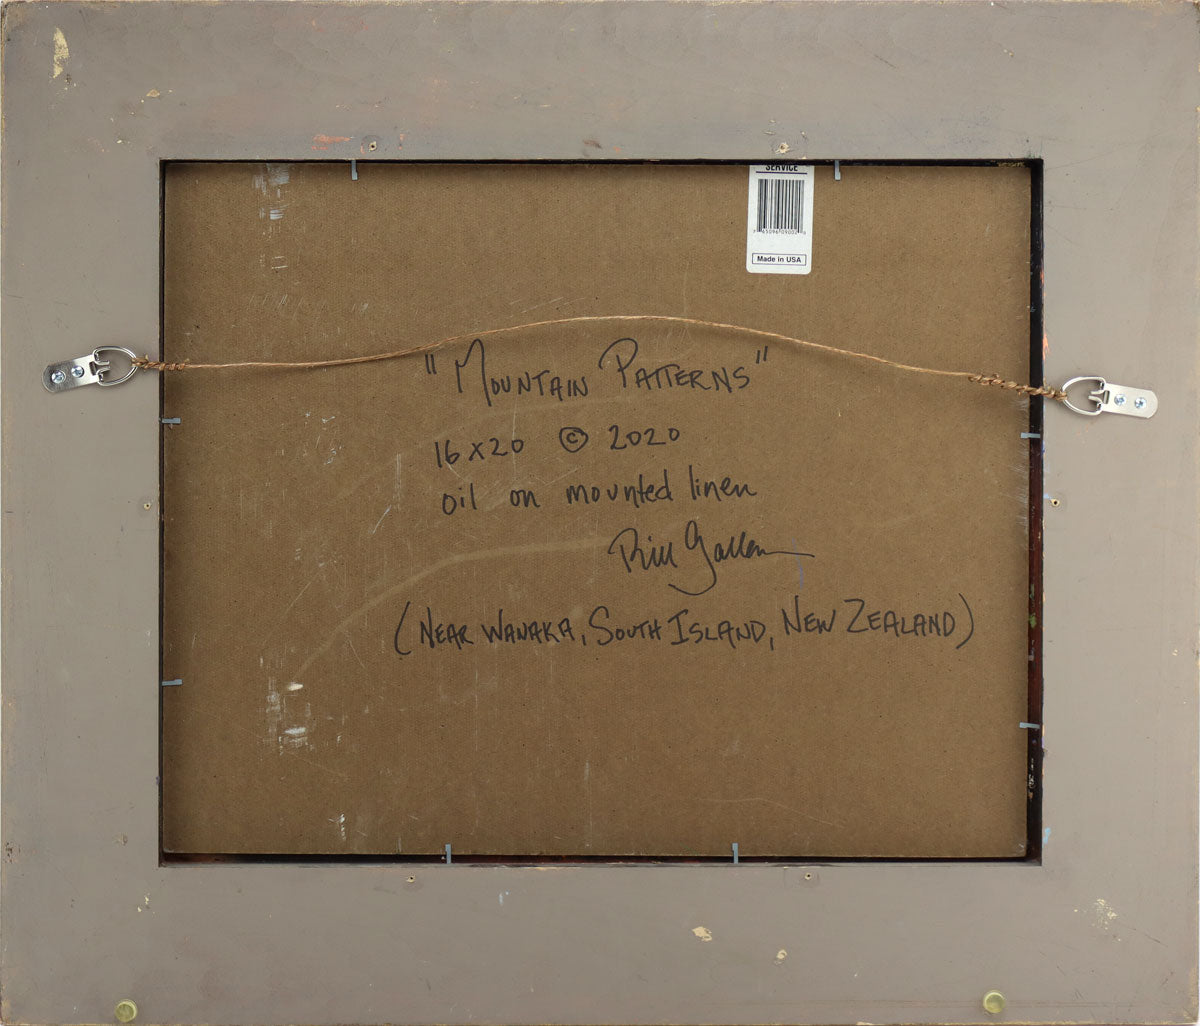 SERVICE
7 45096 09002 0
Made in USA
"MOUNTAIN PATTERNS"
16x20 © 2020
oil on mounted linen
Bill Gallen
(NEAR WANAKA, SOUTH ISLAND, NEW ZEALAND)